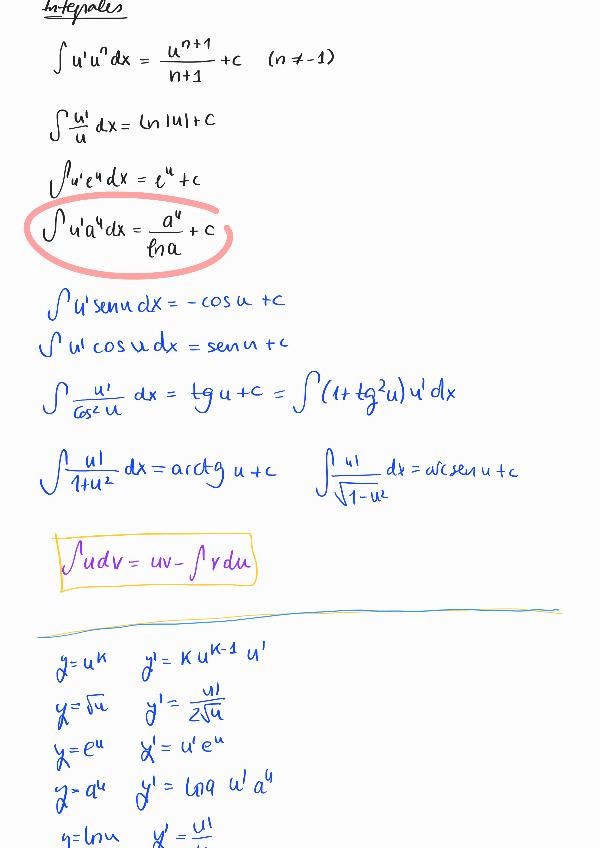 Integrales
∫ u' uⁿ dx = uⁿ⁺¹/(n+1) + c (n ≠ -1)
∫ u'/u dx = ln |u| + c
∫ u' eᵘ dx = eᵘ + c
∫ u' aᵘ dx = aᵘ/ln a + c
∫ u' sen u dx = - cos u + c
∫ u' cos u dx = sen u + c
∫ u'/cos² u dx = tg u + c = ∫ (1 + tg² u) u' dx
∫ u'/(1+u²) dx = arctg u + c ∫ u'/√(1-u²) dx = arcsen u + c
∫ u dv = uv - ∫ v du
y = uᴷ y' = K uᴷ⁻¹ u'
y = √u y' = u'/(2√u)
y = eᵘ y' = u' eᵘ
y = aᵘ y' = ln a u' aᵘ
y = ln u y' = u'/u